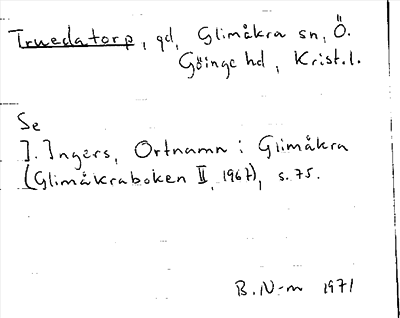 Truedatorp, gd, Glimåkra sn, Ö.
Göinge hd, Krist.l.
Se
I. Ingers, Ortnamn i Glimåkra
(Glimåkraboken II, 1967), s. 75.
B. N-m 1971